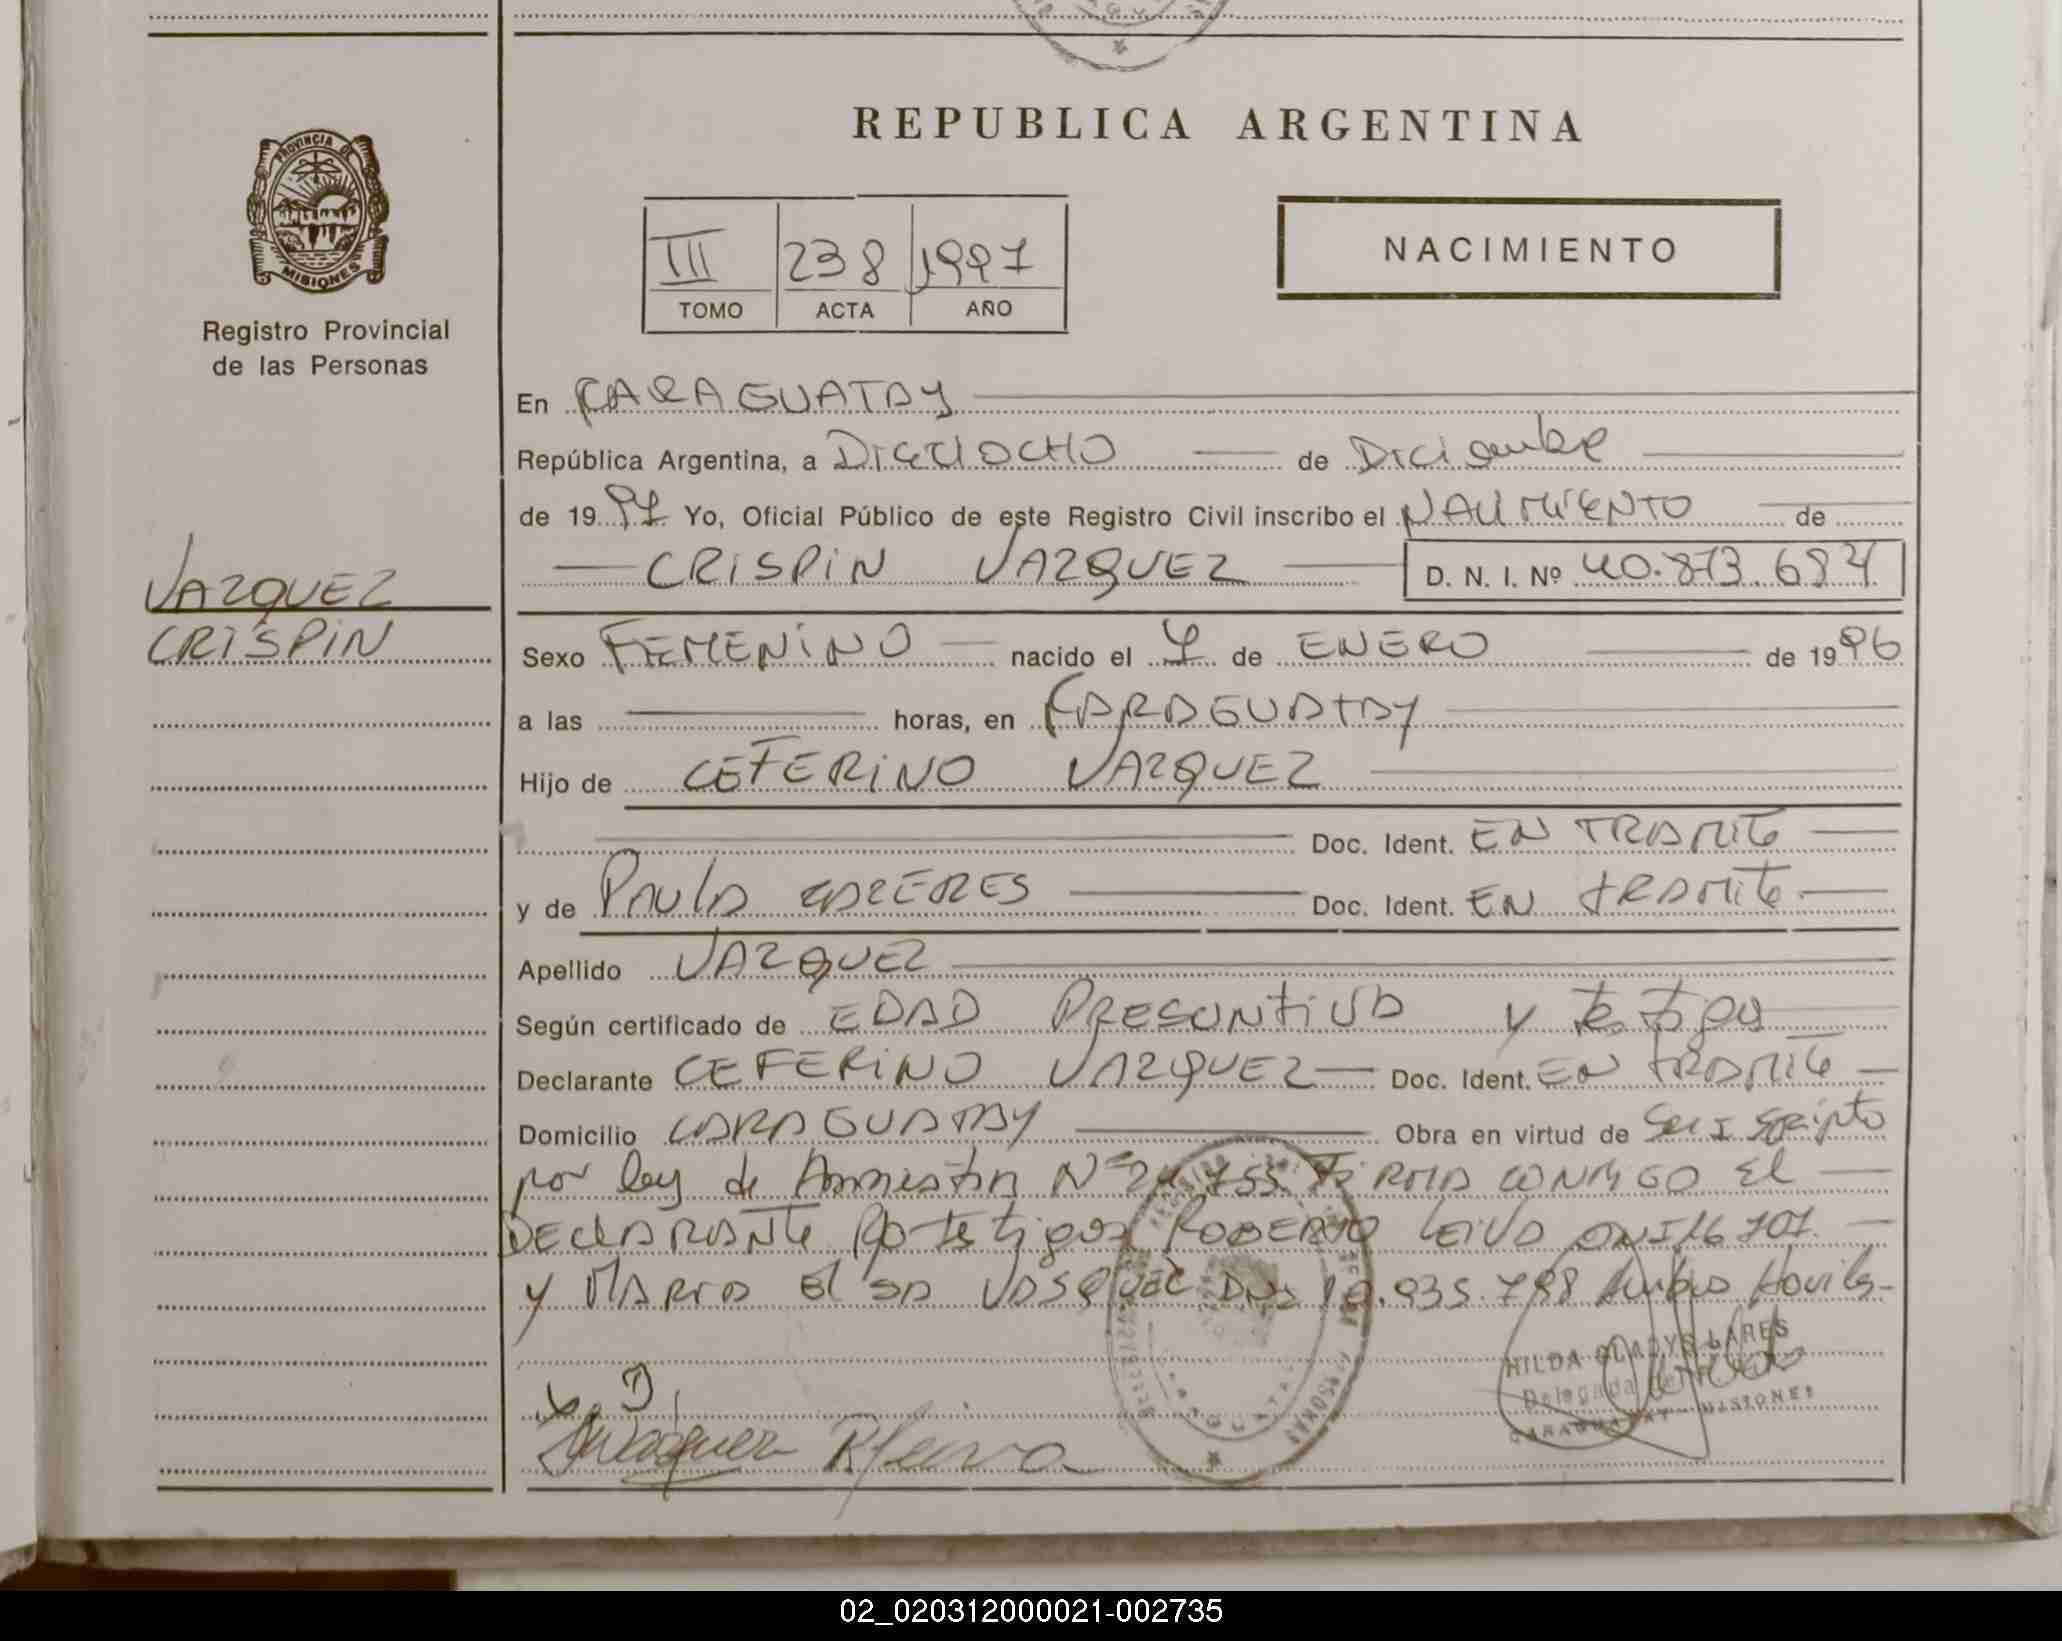 REPUBLICA ARGENTINA
PROVINCIA DE
MISIONES
Registro Provincial
de las Personas
III 238 1997
TOMO ACTA AÑO
NACIMIENTO
En CARAGUATAY
República Argentina, a DIECIOCHO de Diciembre
de 19 97 Yo, Oficial Público de este Registro Civil inscribo el NACIMIENTO de
CRISPIN VAZQUEZ D. N. I. Nº 40.873.684
VAZQUEZ
CRISPIN
Sexo FEMENINO nacido el 7 de ENERO de 1996
a las horas, en CARAGUATAY
Hijo de CEFERINO VAZQUEZ
Doc. Ident. EN TRAMITE
y de PAULA CACERES Doc. Ident. EN TRAMITE
Apellido VAZQUEZ
Según certificado de EDAD PRESUNTIVA y testigos
Declarante CEFERINO VAZQUEZ Doc. Ident. EN TRAMITE
Domicilio CARAGUATAY Obra en virtud de
por ley de Amnistia Nº 24.755 FIRMA CONMIGO El
DECLARANTE testigos ROBERTO LEIVA
y MARIA ElSA VASQUEZ DNI Ambos
HILDA GLADYS LARES
Delegada
CARAGUATAY - MISIONES
Vazquez RLeiva
02_020312000021-002735